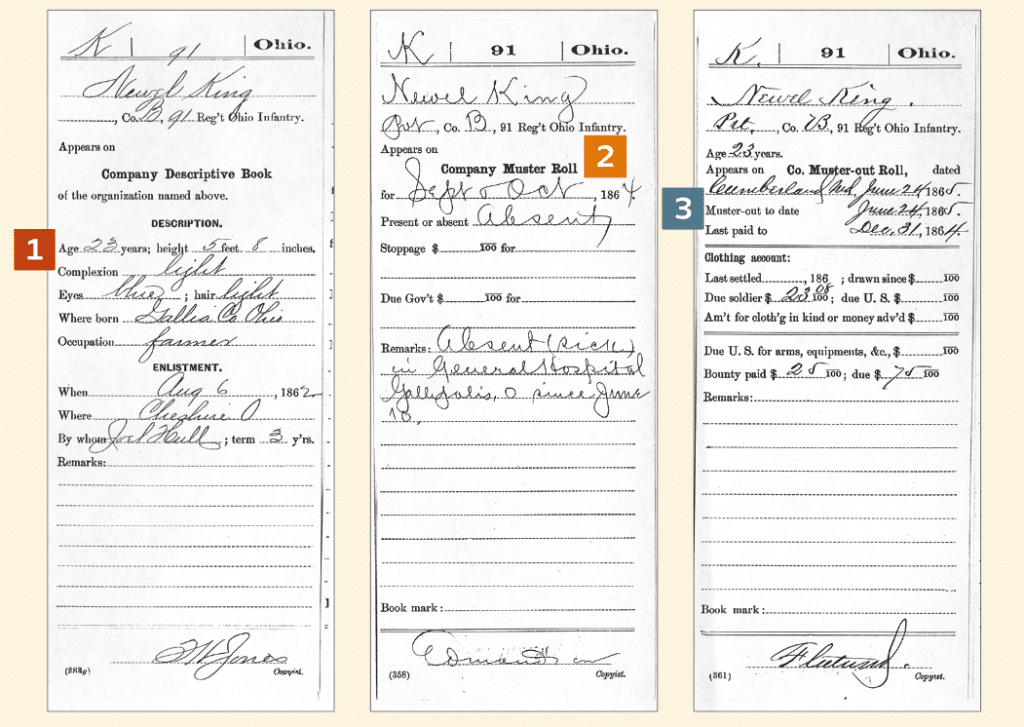 K | 91 | Ohio.
Newel King
, Co. B, 91 Reg't Ohio Infantry.
Appears on
Company Descriptive Book
of the organization named above.
DESCRIPTION.
1
Age 23 years; height 5 feet 8 inches.
Complexion light
Eyes blue ; hair light
Where born Gallia Co Ohio
Occupation farmer
ENLISTMENT.
When Aug 6 , 1862
Where Cheshire O
By whom Joel Hull ; term 3 y'rs.
Remarks:
(383g) Copyist.
K | 91 | Ohio.
Newel King
Pvt , Co. B , 91 Reg't Ohio Infantry.
Appears on
2
Company Muster Roll
for Sept & Oct , 1864.
Present or absent Absent
Stoppage $ 100 for
Due Gov't $ 100 for
Remarks: Absent (sick)
in General Hospital
Gallipolis, O since June
18,
Book mark:
(358) Copyist.
K. | 91 | Ohio.
Newel King.
Pvt. , Co. B , 91 Reg't Ohio Infantry.
Age 23 years.
Appears on Co. Muster-out Roll, dated
Cumberland Md, June 24, 1865.
3
Muster-out to date June 24, 1865.
Last paid to Dec. 31, 1864
Clothing account:
Last settled , 186 ; drawn since $ 100
Due soldier $ 23 08 100; due U. S. $ 100
Am't for cloth'g in kind or money adv'd $ 100
Due U. S. for arms, equipments, &c., $ 100
Bounty paid $ 25 100; due $ 75 100
Remarks:
Book mark:
(361) Copyist.